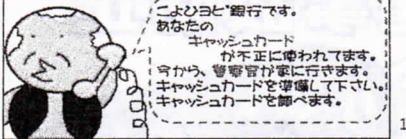 こよひヨピ銀行です。
あなたの
キャッシュカード
が不正に使われてます。
今から、警察官が家に行きます。
キャッシュカードを準備して下さい。
キャッシュカードを調べます。
1